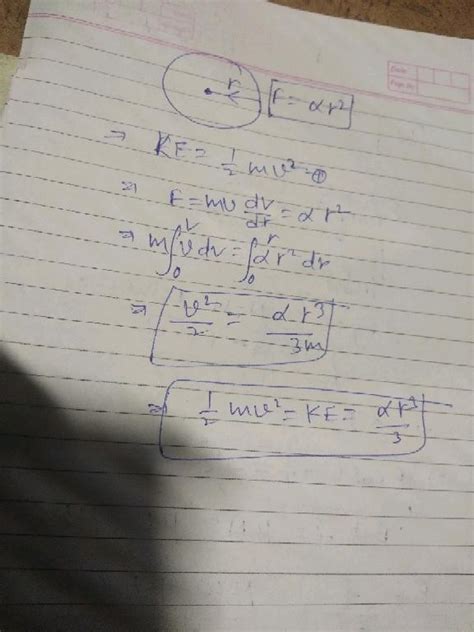 Date
Page No
r
F = αr²
⇒ KE = 1/2 mv² — ①
⇒ F = mv dv/dr = αr²
⇒ m∫₀ᵛ v dv = ∫₀ʳ αr² dr
⇒ v²/2 = αr³/3m
⇒ 1/2 mv² = KE = αr³/3